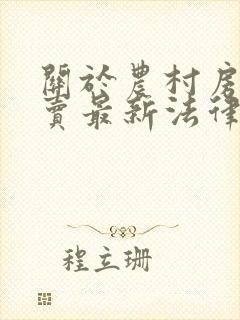 關於農村房
賣最新法律
程立珊